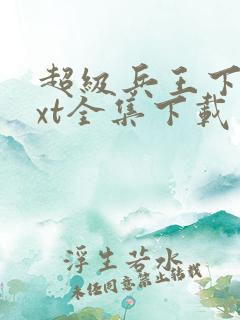 超级兵王下
xt全集下载
浮生若水
未经同意禁止转载